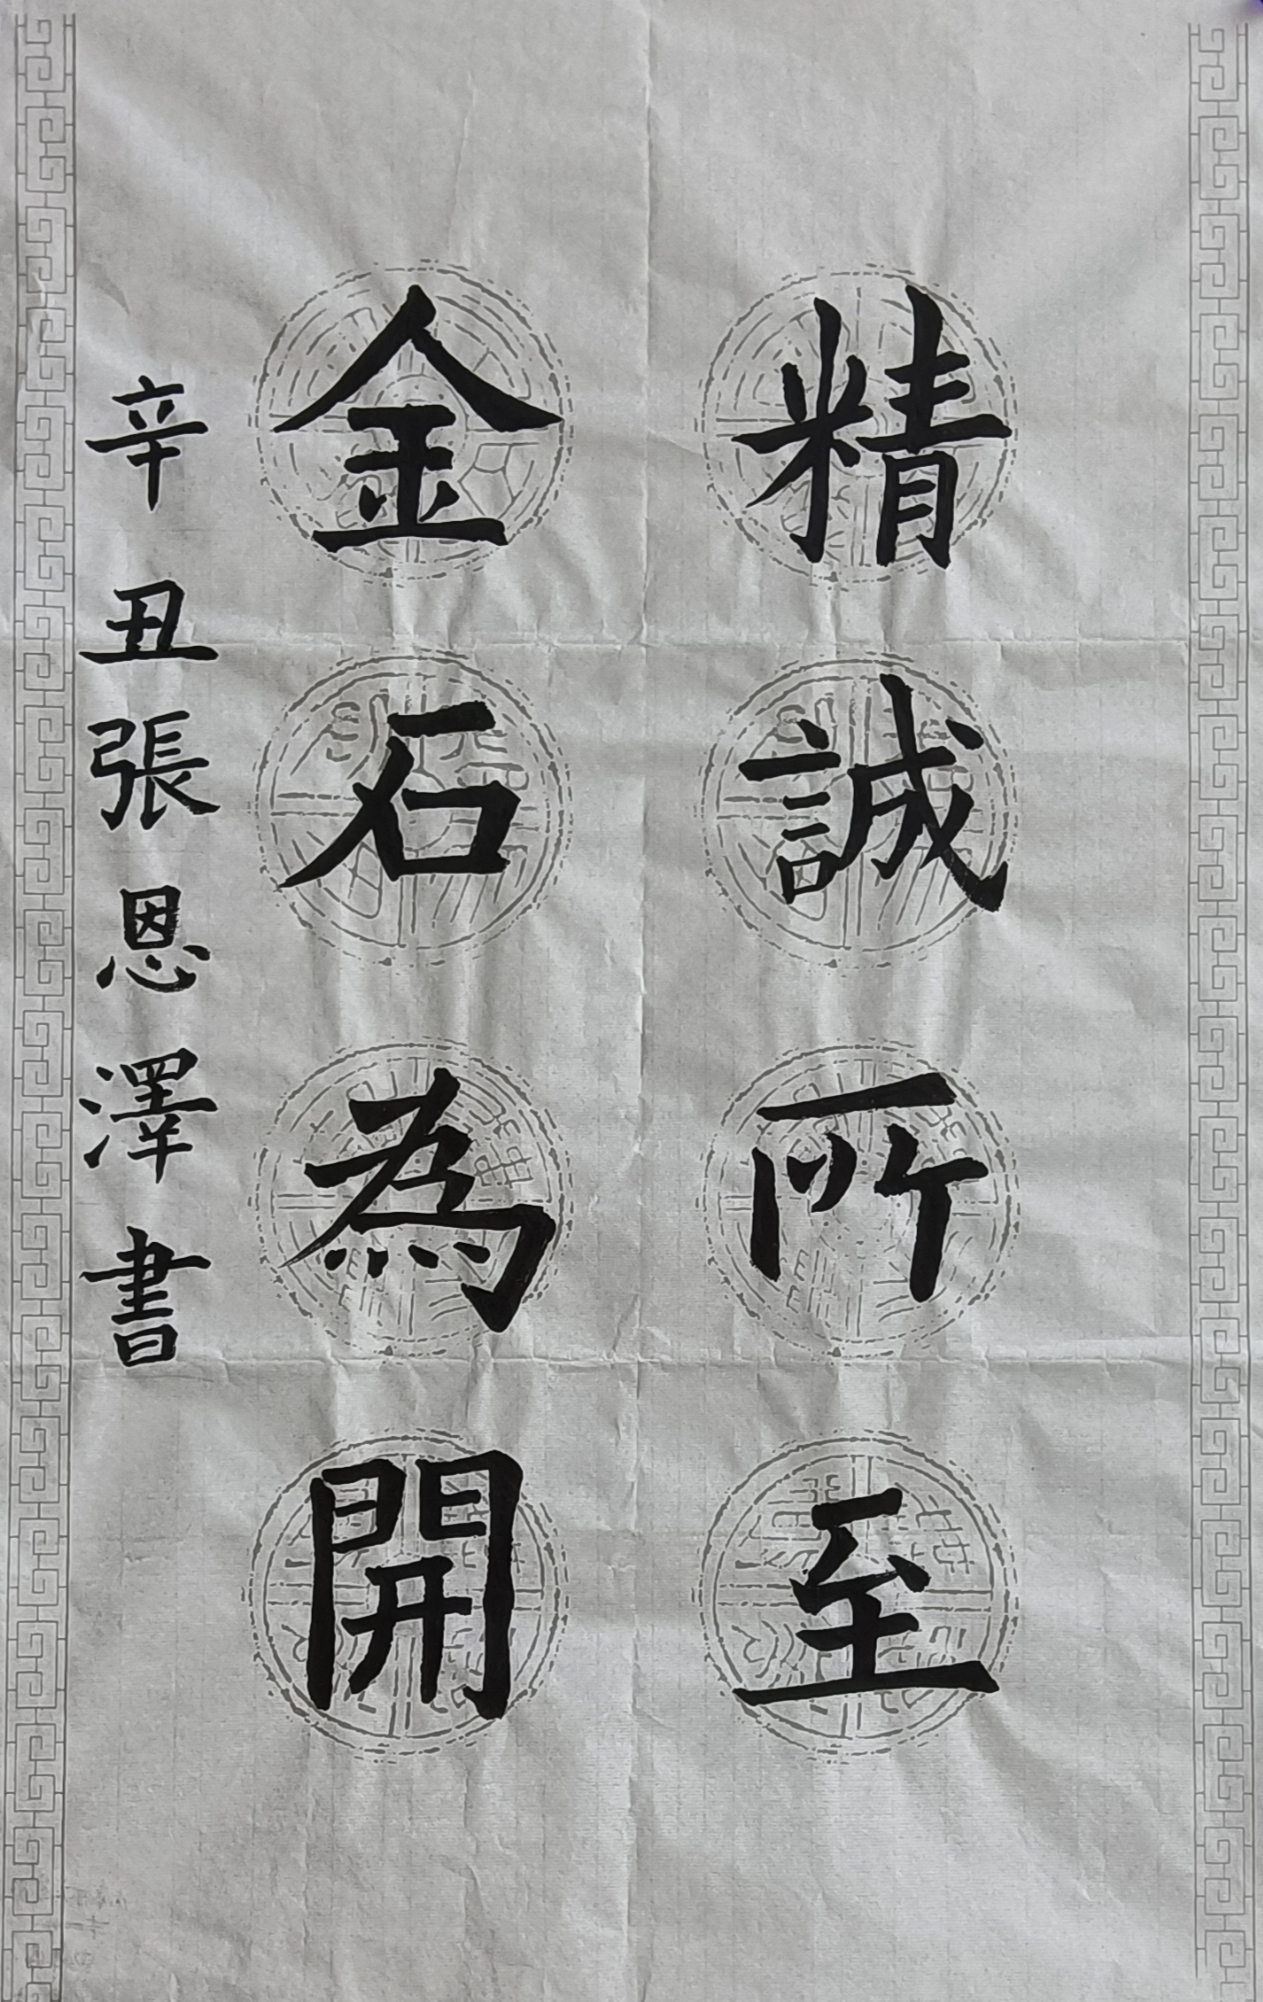 精誠所至
金石為開
辛丑張恩澤書